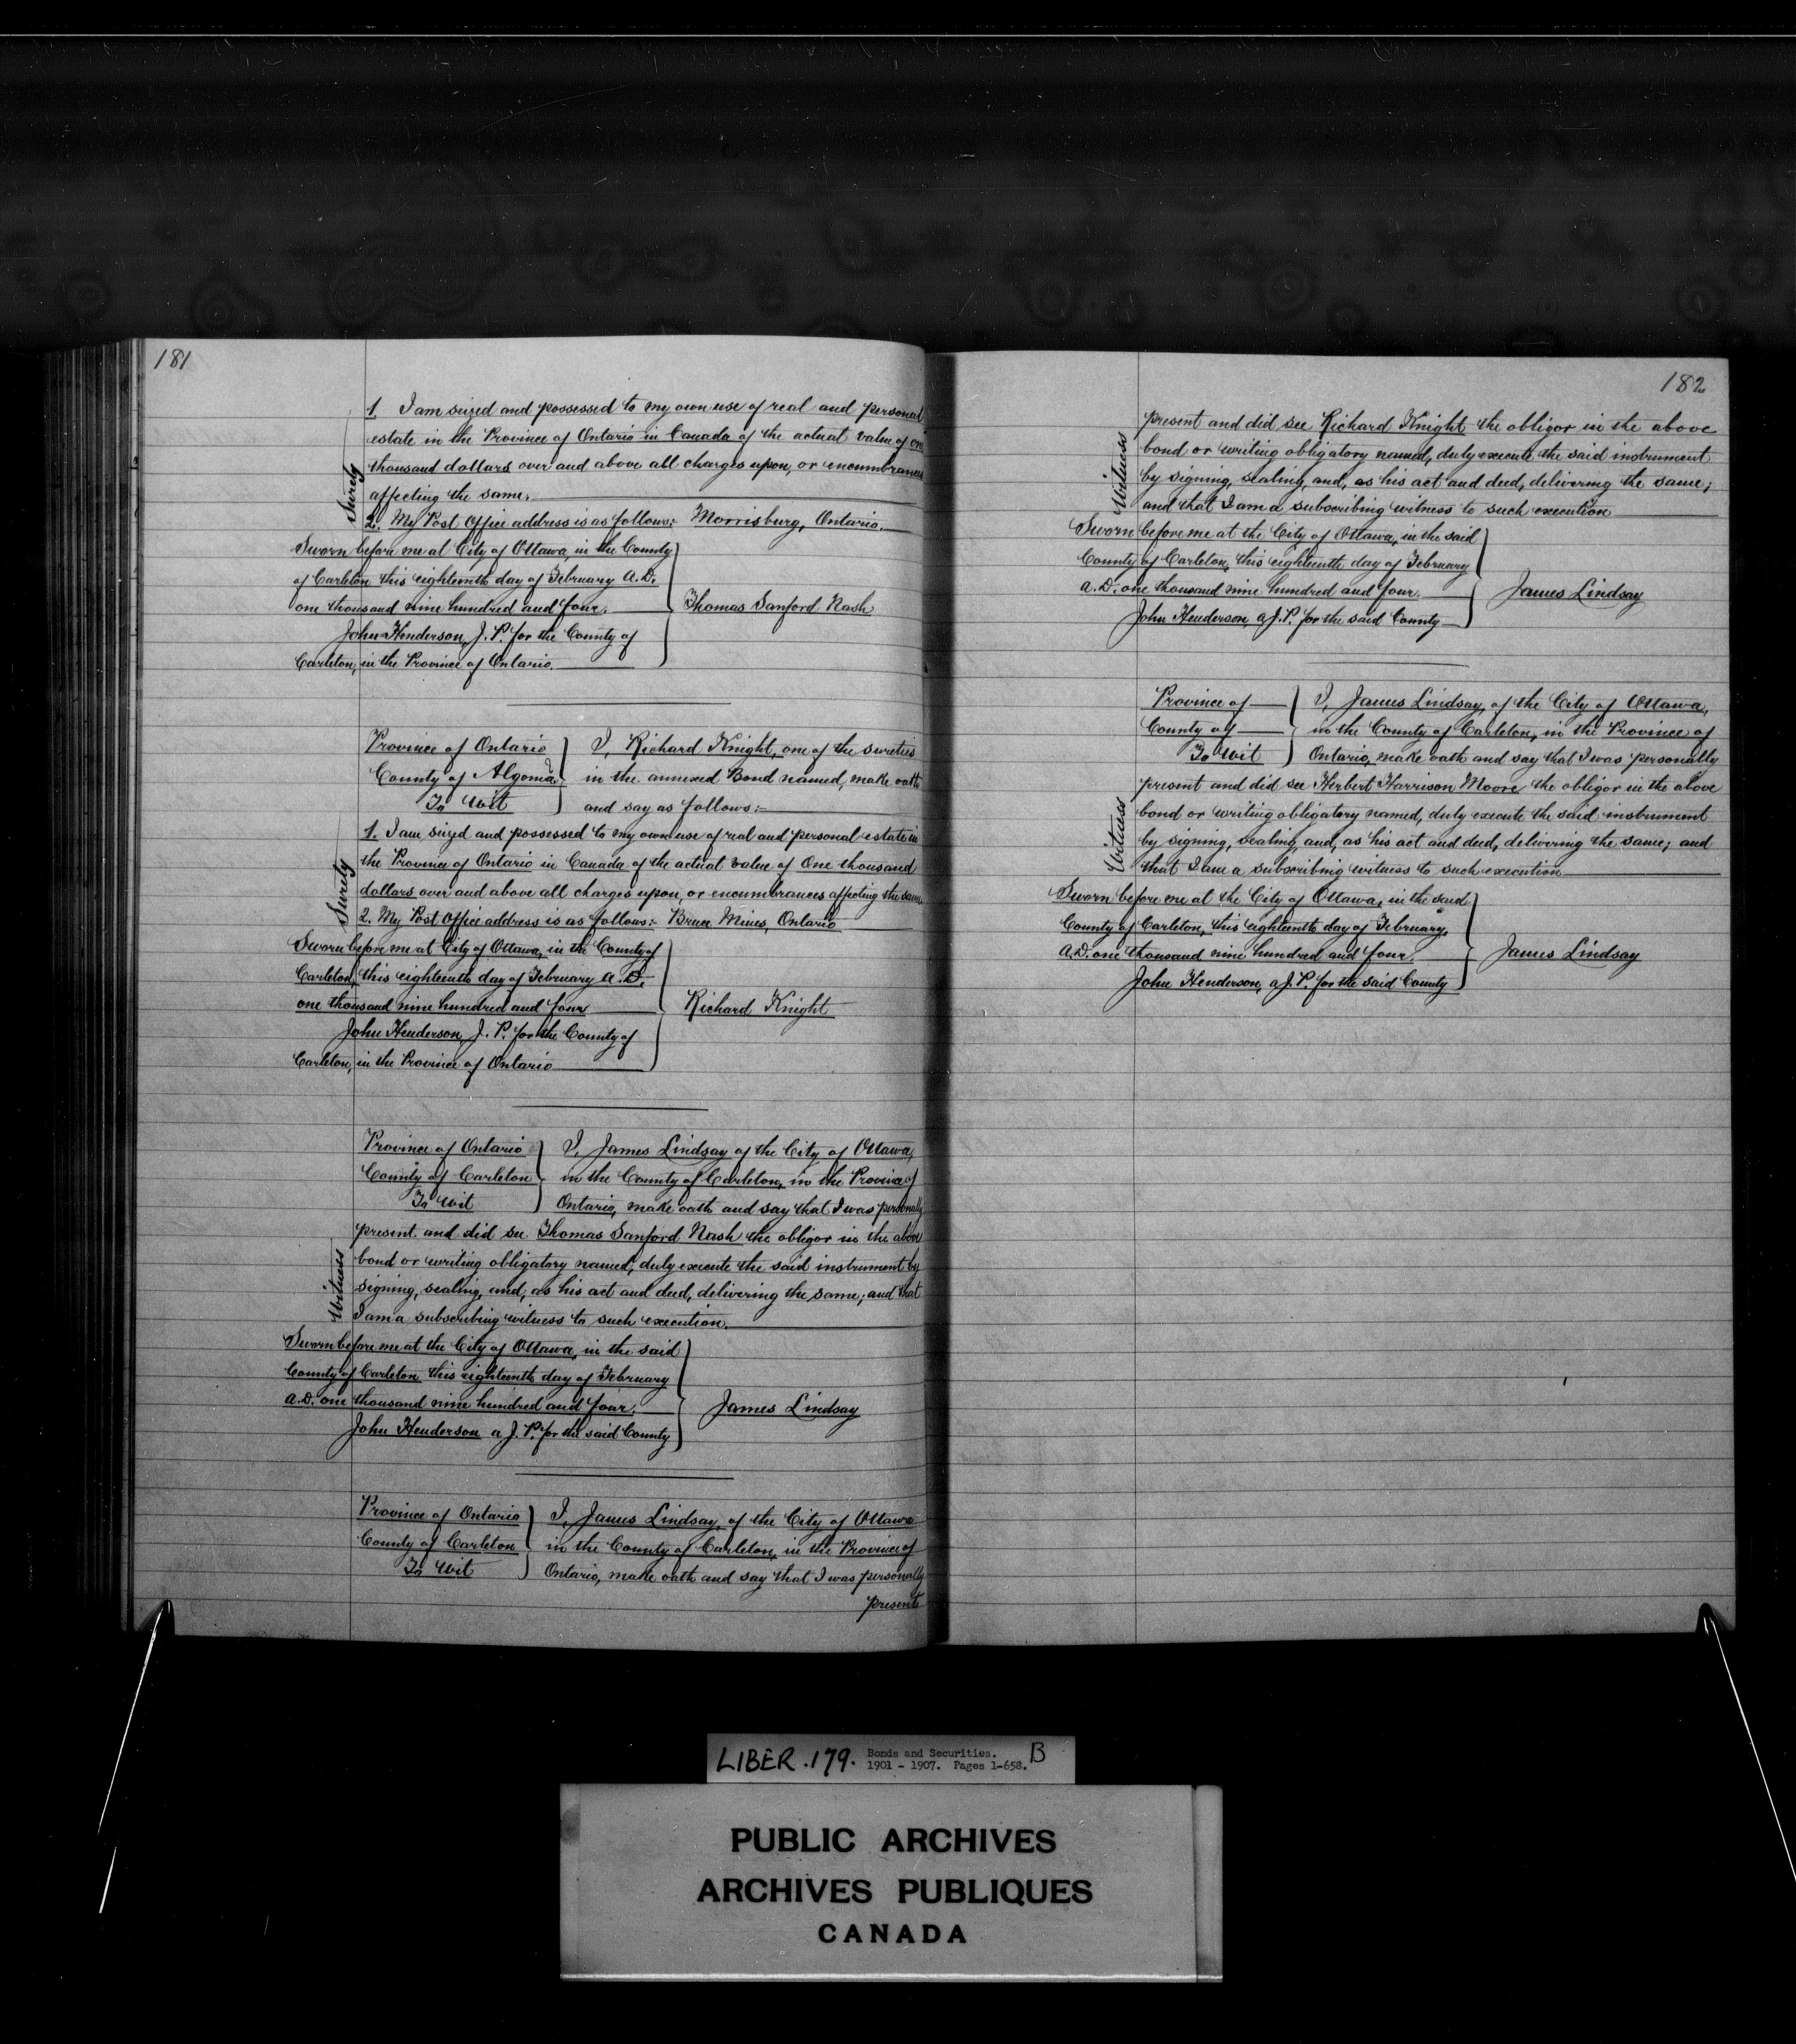 181
Surety
1. I am seized and possessed to my own use of real and personal
estate in the Province of Ontario in Canada of the actual value of one
thousand dollars over and above all charges upon, or encumbrances
affecting the same.
2. My Post Office address is as follows:- Morrisburg, Ontario.
Sworn before me at City of Ottawa, in the County
of Carleton this eighteenth day of February A.D.
one thousand nine hundred and four.
Thomas Sanford Nash
John Henderson, J. P. for the County of
Carleton, in the Province of Ontario.
Province of Ontario
County of Algoma
To Wit
I, Richard Knight, one of the sureties
in the annexed Bond named, make oath
and say as follows:-
Surety
1. I am seized and possessed to my own use of real and personal estate in
the Province of Ontario in Canada of the actual value of One thousand
dollars over and above all charges upon, or encumbrances affecting the same
2. My Post Office address is as follows:- Bruce Mines, Ontario
Sworn before me at City of Ottawa, in the County of
Carleton, this eighteenth day of February A.D.
one thousand nine hundred and four
Richard Knight
John Henderson, J. P. for the County of
Carleton, in the Province of Ontario
Province of Ontario
County of Carleton
To Wit
I, James Lindsay of the City of Ottawa,
in the County of Carleton, in the Province of
Ontario, make oath and say that I was personally
Witness
present and did see Thomas Sanford Nash the obligor in the above
bond or writing obligatory named, duly execute the said instrument by
signing, sealing, and, as his act and deed, delivering the same; and that
I am a subscribing witness to such execution.
Sworn before me at the City of Ottawa, in the said
County of Carleton this eighteenth day of February
A.D. one thousand nine hundred and four.
James Lindsay
John Henderson a J. P. for the said County
Province of Ontario
County of Carleton
To Wit
I, James Lindsay, of the City of Ottawa
in the County of Carleton, in the Province of
Ontario, make oath and say that I was personally
present
182
Witness
present and did see Richard Knight the obligor in the above
bond or writing obligatory named, duly execute the said instrument
by signing, sealing, and, as his act and deed, delivering the same;
and that I am a subscribing witness to such execution
Sworn before me at the City of Ottawa, in the said
County of Carleton, this eighteenth day of February
A.D. one thousand nine hundred and four.
James Lindsay
John Henderson, a J. P. for the said County
Province of
County of
To Wit
I, James Lindsay, of the City of Ottawa,
in the County of Carleton, in the Province of
Ontario, make oath and say that I was personally
Witness
present and did see Herbert Harrison Moore the obligor in the above
bond or writing obligatory named, duly execute the said instrument
by signing, sealing, and, as his act and deed, delivering the same; and
that I am a subscribing witness to such execution
Sworn before me at the City of Ottawa, in the said
County of Carleton, this eighteenth day of February,
A.D. one thousand nine hundred and four.
James Lindsay
John Henderson, a J. P. for the said County
LIBER .179. Bonds and Securities. B
1901 - 1907. Pages 1-658.
PUBLIC ARCHIVES
ARCHIVES PUBLIQUES
CANADA